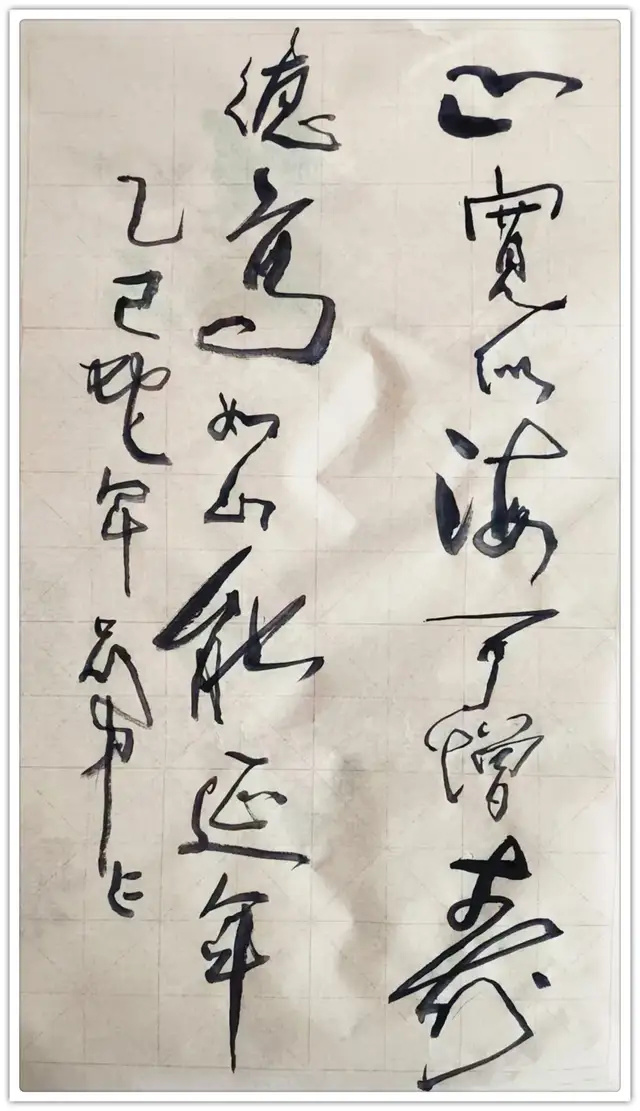 心寬似海可增壽
德高如山能延年
乙巳蛇年